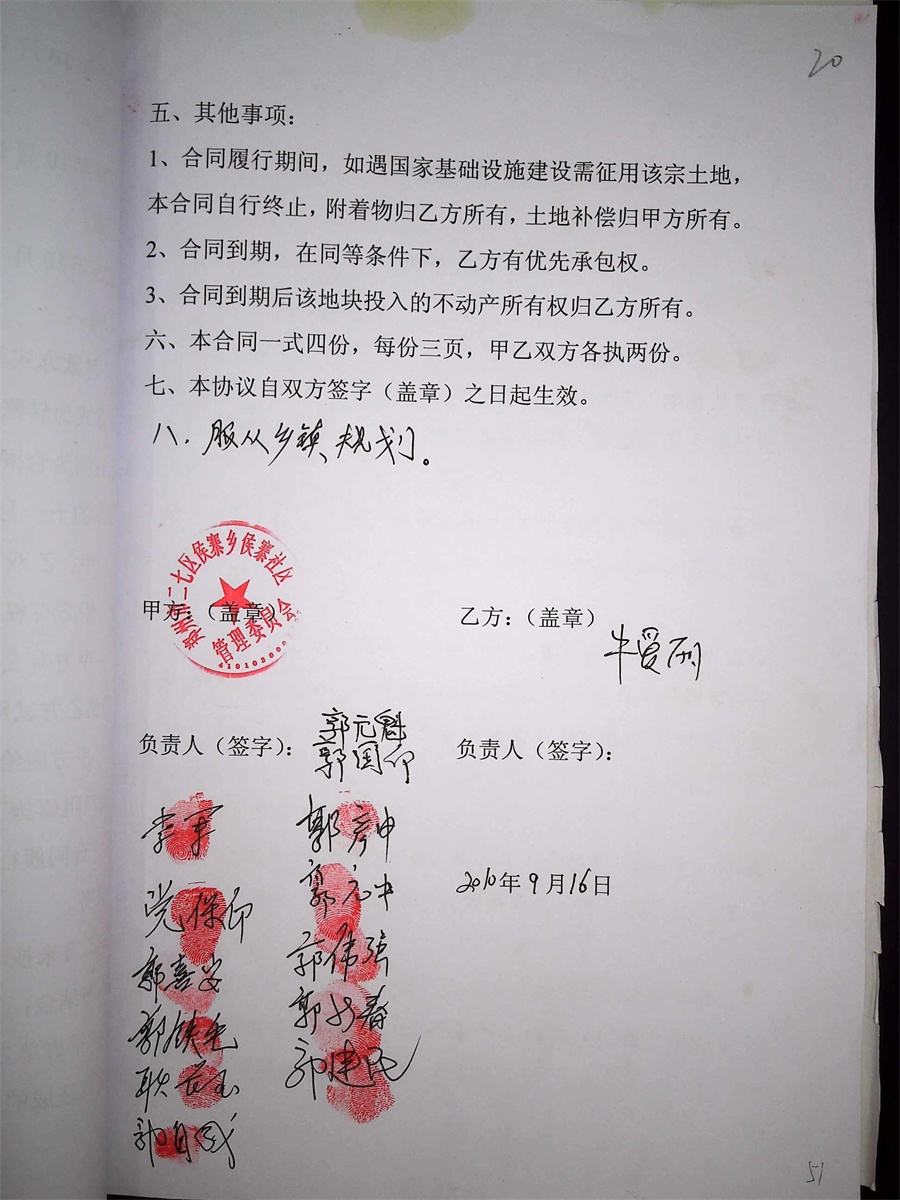 20
五、其他事项：
1、合同履行期间，如遇国家基础设施建设需征用该宗土地，
本合同自行终止，附着物归乙方所有，土地补偿归甲方所有。
2、合同到期，在同等条件下，乙方有优先承包权。
3、合同到期后该地块投入的不动产所有权归乙方所有。
六、本合同一式四份，每份三页，甲乙双方各执两份。
七、本协议自双方签字（盖章）之日起生效。
八、服从乡镇规划。
郑州市二七区侯寨乡侯寨社区
管理委员会
甲方：（盖章） 乙方：（盖章）
郭元魁
负责人（签字）： 郭国仰 负责人（签字）：
李军 郭彦中
党保仰 郭元中
2010年9月16日
郭喜安 郭伟强
郭铁毛 郭春
耿 玉 郭建民
郭自
51